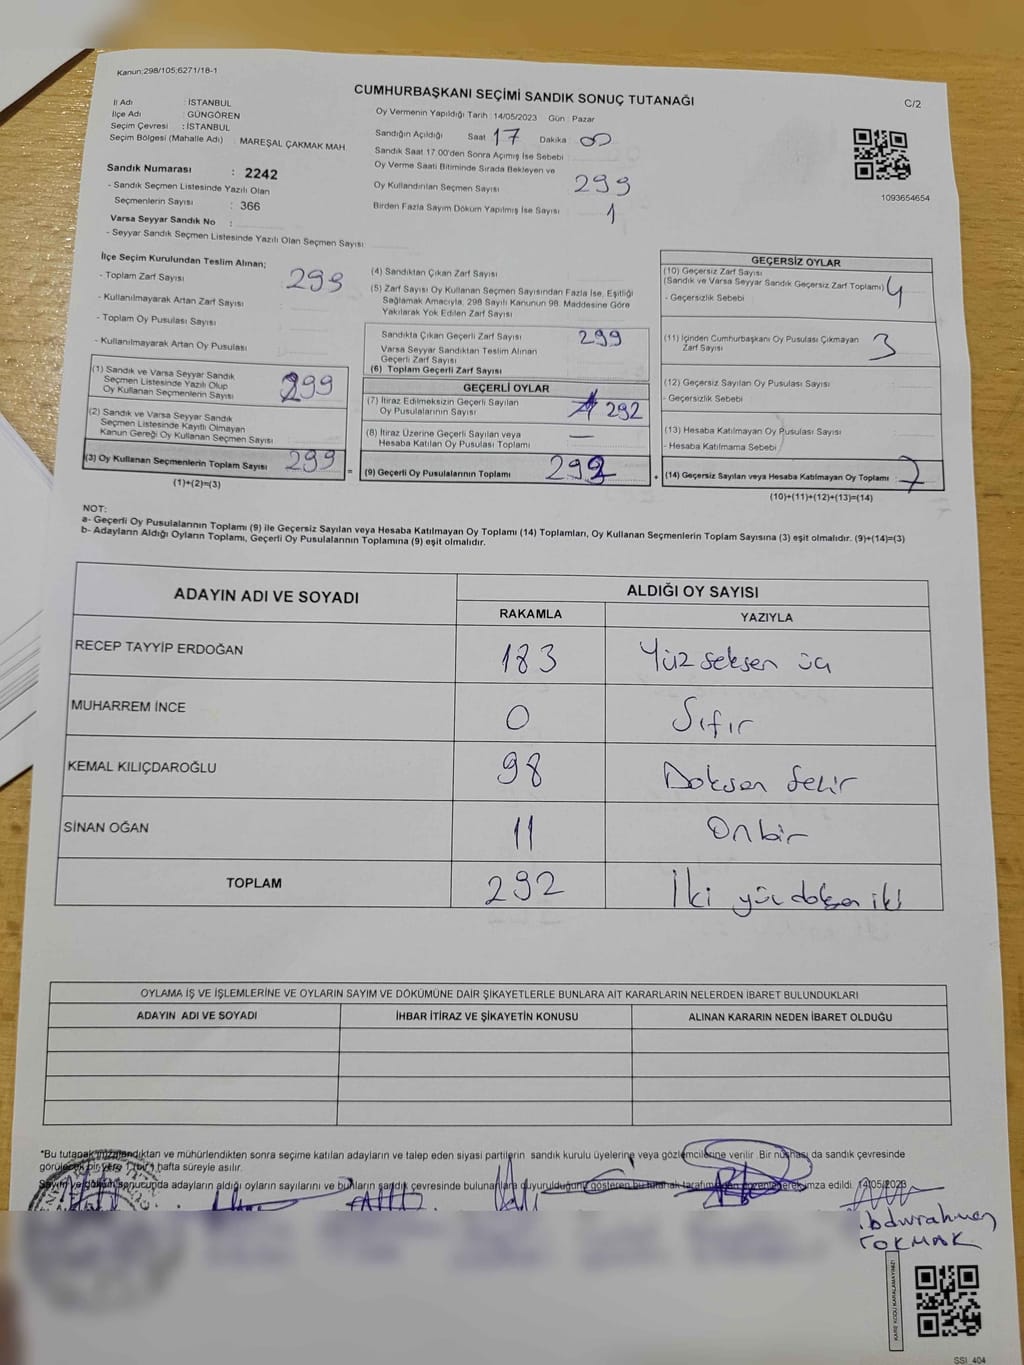 Kanun:298/105;6271/18-1
CUMHURBAŞKANI SEÇİMİ SANDIK SONUÇ TUTANAĞI
C/2
İl Adı : İSTANBUL
İlçe Adı : GÜNGÖREN
Seçim Çevresi : İSTANBUL
Seçim Bölgesi (Mahalle Adı) : MAREŞAL ÇAKMAK MAH.
Sandık Numarası : 2242
- Sandık Seçmen Listesinde Yazılı Olan
Seçmenlerin Sayısı : 366
Varsa Seyyar Sandık No :
- Seyyar Sandık Seçmen Listesinde Yazılı Olan Seçmen Sayısı
Oy Vermenin Yapıldığı Tarih : 14/05/2023 Gün : Pazar
Sandığın Açıldığı Saat 17 Dakika : 00
Sandık Saat 17.00'den Sonra Açımış İse Sebebi
Oy Verme Saati Bitiminde Sırada Bekleyen ve
Oy Kullandırılan Seçmen Sayısı 299
Birden Fazla Sayım Döküm Yapılmış İse Sayısı 1
1093654654
İlçe Seçim Kurulundan Teslim Alınan;
- Toplam Zarf Sayısı 299
- Kullanılmayarak Artan Zarf Sayısı
- Toplam Oy Pusulası Sayısı
- Kullanılmayarak Artan Oy Pusulası
(1) Sandık ve Varsa Seyyar Sandık
Seçmen Listesinde Yazılı Olup
Oy Kullanan Seçmenlerin Sayısı 299
(2) Sandık ve Varsa Seyyar Sandık
Seçmen Listesinde Kayıtlı Olmayan
Kanun Gereği Oy Kullanan Seçmen Sayısı
(3) Oy Kullanan Seçmenlerin Toplam Sayısı 299 =
(1)+(2)=(3)
(4) Sandıktan Çıkan Zarf Sayısı
(5) Zarf Sayısı Oy Kullanan Seçmen Sayısından Fazla İse, Eşitliği
Sağlamak Amacıyla, 298 Sayılı Kanunun 98. Maddesine Göre
Yakılarak Yok Edilen Zarf Sayısı
Sandıkta Çıkan Geçerli Zarf Sayısı 299
Varsa Seyyar Sandıktan Teslim Alınan
Geçerli Zarf Sayısı
(6) Toplam Geçerli Zarf Sayısı
GEÇERLİ OYLAR
(7) İtiraz Edilmeksizin Geçerli Sayılan
Oy Pusulalarının Sayısı 292
(8) İtiraz Üzerine Geçerli Sayılan veya
Hesaba Katılan Oy Pusulası Toplamı —
(9) Geçerli Oy Pusulalarının Toplamı 292 +
GEÇERSİZ OYLAR
(10) Geçersiz Zarf Sayısı
(Sandık ve Varsa Seyyar Sandık Geçersiz Zarf Toplamı) 4
- Geçersizlik Sebebi
(11) İçinden Cumhurbaşkanı Oy Pusulası Çıkmayan
Zarf Sayısı 3
(12) Geçersiz Sayılan Oy Pusulası Sayısı
- Geçersizlik Sebebi
(13) Hesaba Katılmayan Oy Pusulası Sayısı
- Hesaba Katılmama Sebebi
(14) Geçersiz Sayılan veya Hesaba Katılmayan Oy Toplamı 7
(10)+(11)+(12)+(13)=(14)
NOT:
a- Geçerli Oy Pusulalarının Toplamı (9) ile Geçersiz Sayılan veya Hesaba Katılmayan Oy Toplamı (14) Toplamları, Oy Kullanan Seçmenlerin Toplam Sayısına (3) eşit olmalıdır. (9)+(14)=(3)
b- Adayların Aldığı Oyların Toplamı, Geçerli Oy Pusulalarının Toplamına (9) eşit olmalıdır.
ADAYIN ADI VE SOYADI ALDIĞI OY SAYISI
RAKAMLA YAZIYLA
RECEP TAYYİP ERDOĞAN 183 Yüz seksen üç
MUHARREM İNCE 0 Sıfır
KEMAL KILIÇDAROĞLU 98 Doksan Sekiz
SİNAN OĞAN 11 Onbir
TOPLAM 292 İki yüz doksan iki
OYLAMA İŞ VE İŞLEMLERİNE VE OYLARIN SAYIM VE DÖKÜMÜNE DAİR ŞİKAYETLERLE BUNLARA AİT KARARLARIN NELERDEN İBARET BULUNDUKLARI
ADAYIN ADI VE SOYADI İHBAR İTİRAZ VE ŞİKAYETİN KONUSU ALINAN KARARIN NEDEN İBARET OLDUĞU
*Bu tutanak imzalandıktan ve mühürlendikten sonra seçime katılan adayların ve talep eden siyasi partilerin sandık kurulu üyelerine veya gözlemcilerine verilir. Bir nüshası da sandık çevresinde
görülecek bir yere 1 (bir) hafta süreyle asılır.
Sayım ve döküm sonucunda adayların aldığı oyların sayılarını ve bunların sandık çevresinde bulunanlara duyurulduğunu gösteren bu tutanak tarafımızdan düzenlenerek imza edildi. 14/05/2023
TOKMAK
KARE KODU KARALAMAYINIZ!
SSI_404